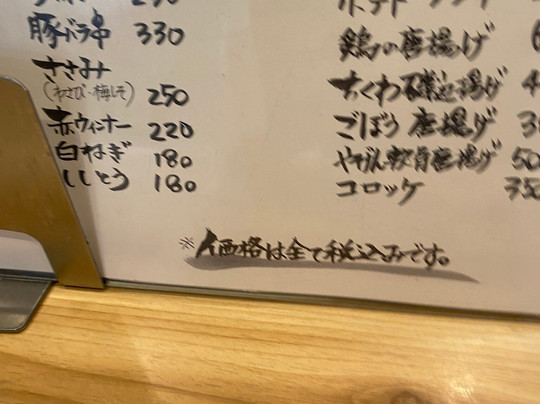 豚バラ串 330
ささみ
(わさび・梅しそ) 250
赤ウィンナー 220
白ねぎ 180
ししとう 180
鶏の唐揚げ
ちくわ磯辺揚げ
ごぼう唐揚げ
やげん軟骨唐揚げ
コロッケ
※価格は全て税込みです。